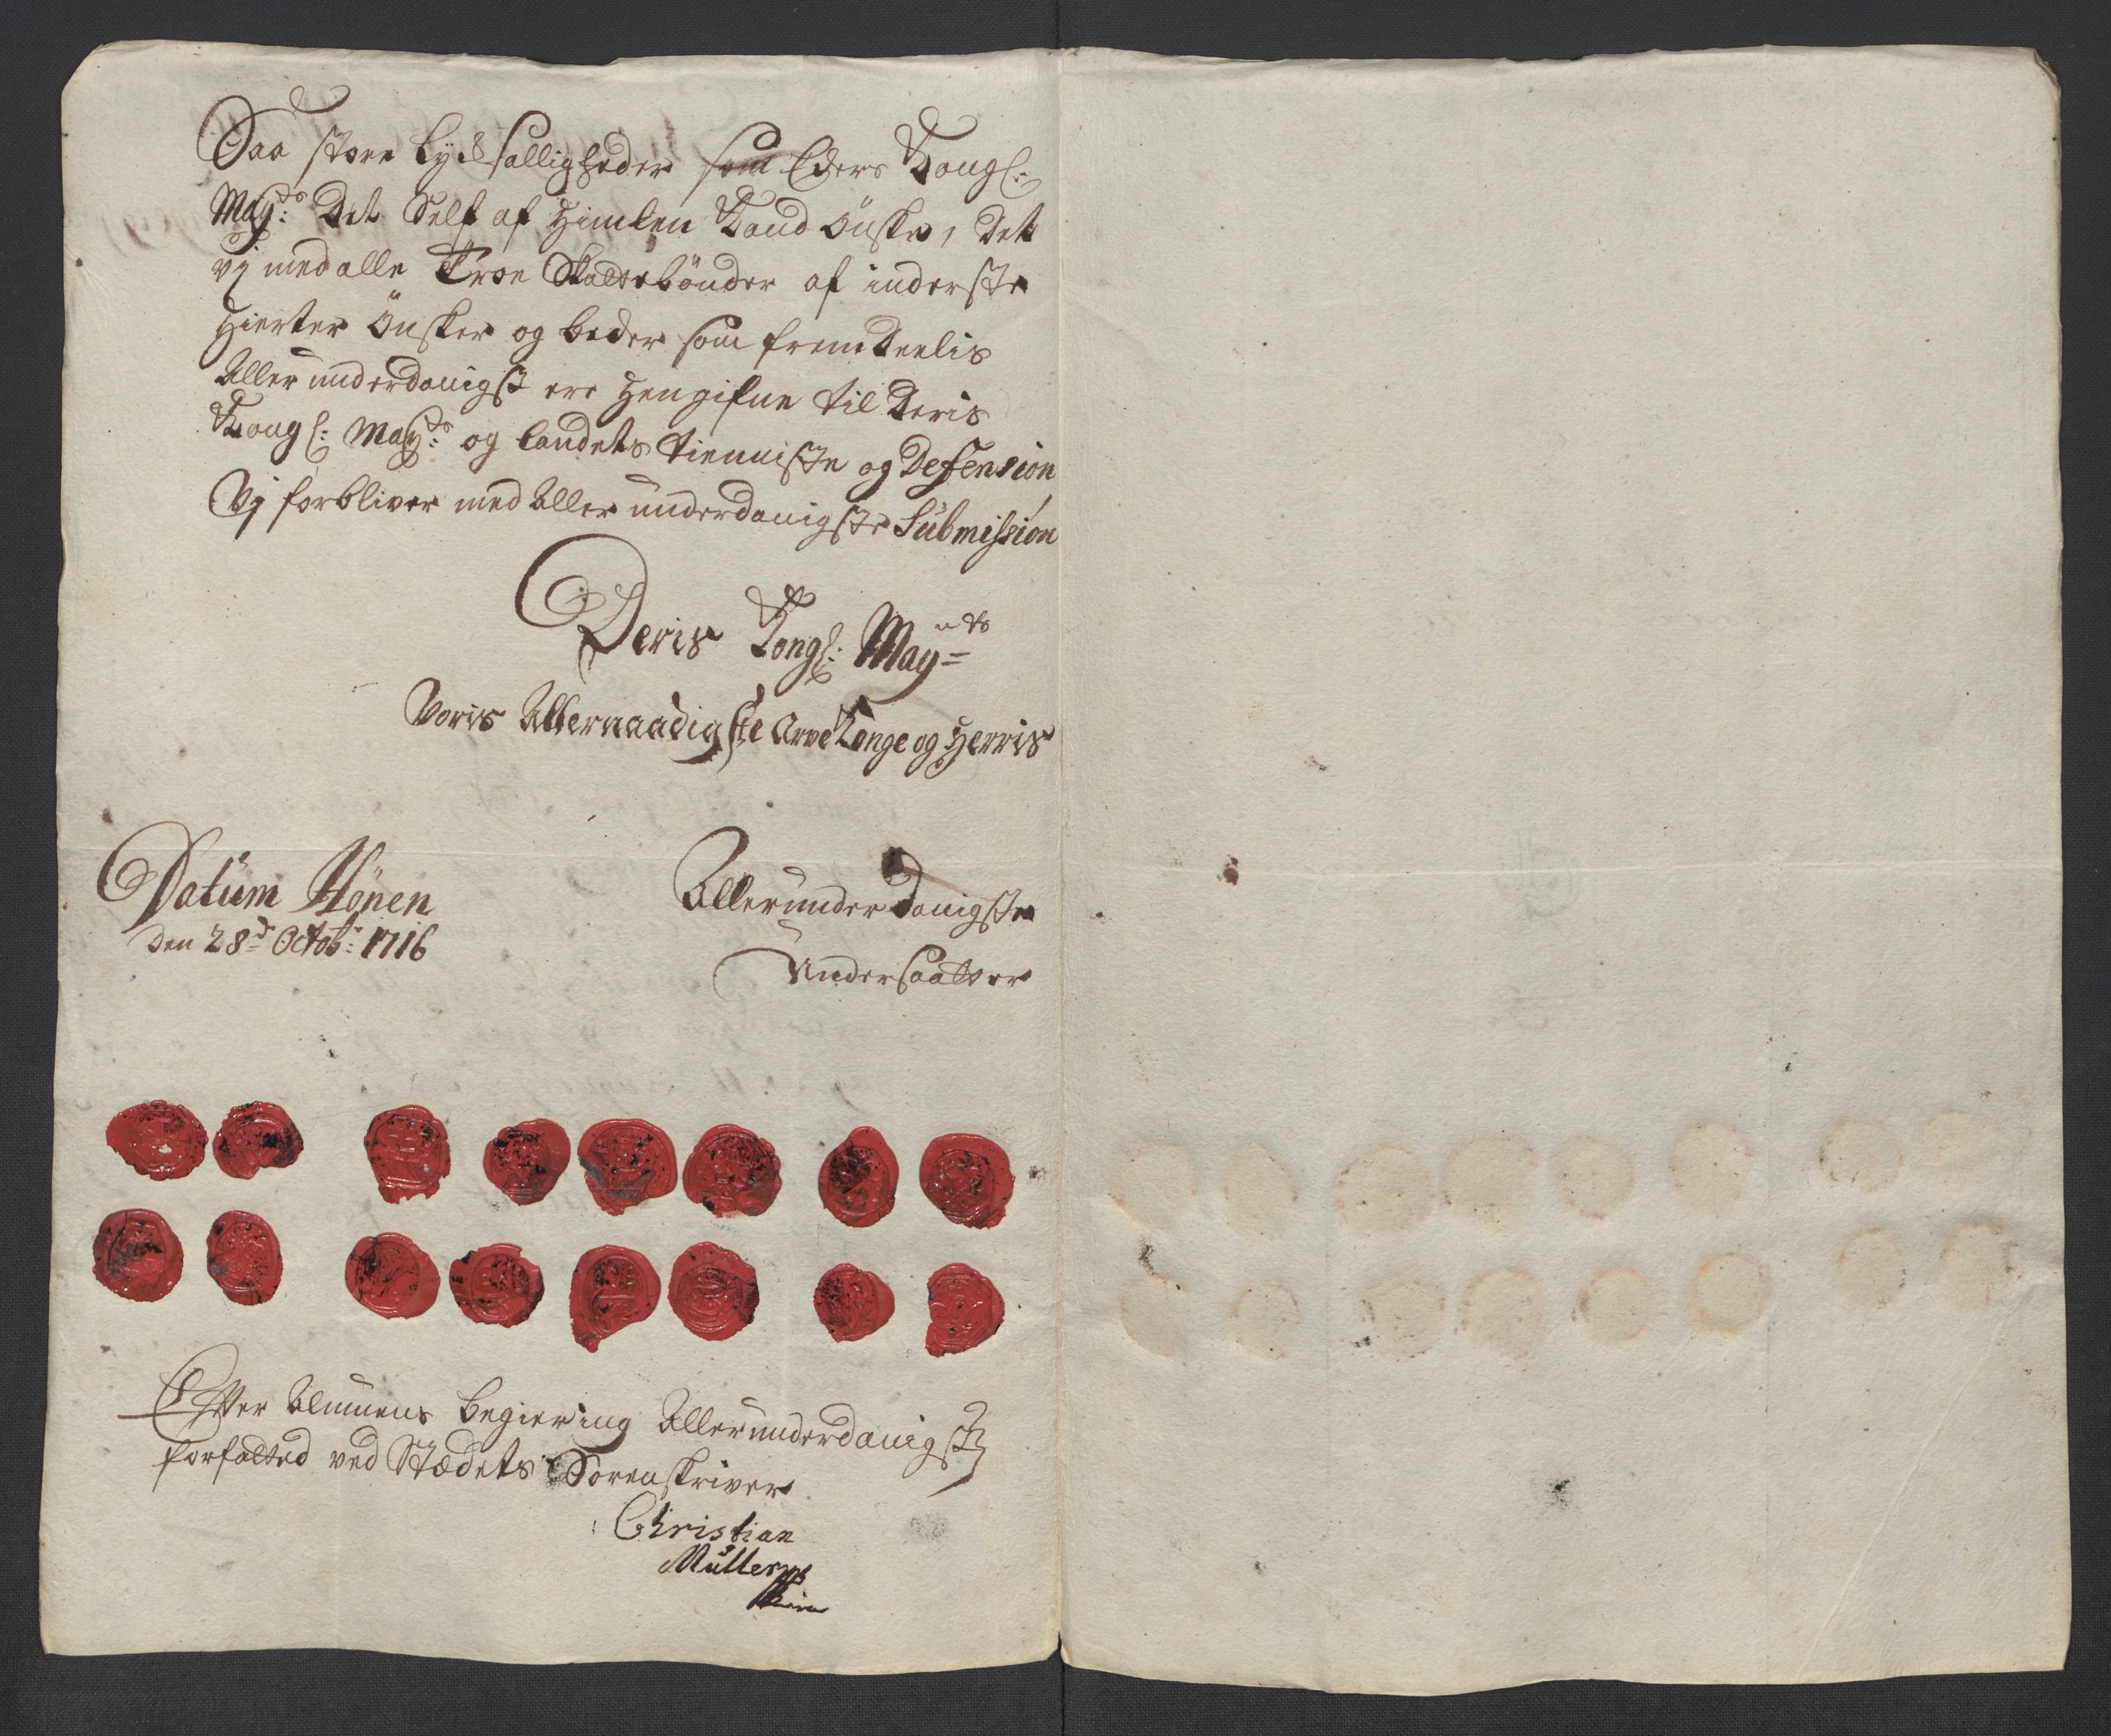 Saa store Lycksalligheder som Eders Kongl:
May:ts Det Self af Himlen Kand Önske, Det
vj med alle Troe Skattebönder af inderste
Hierter Önsker og beder som fremdeelis
Allerunderdanigst ere Hengifne til Deris
Kongl: May:ts og Landets tienniste og Defension
Vj forbliver med Allerunderdanigste Submission
Deris Kongl: May:ts
Voris Allernaadigste Arve Konge og Herris
Datum Hönen
Den 28de Octobr: 1716
Allerunderdanigste
Undersaatter
Efter Almuens Begiering Allerunderdanigst
forfatted ved Stædets Sorenskriver
Christian
Muller